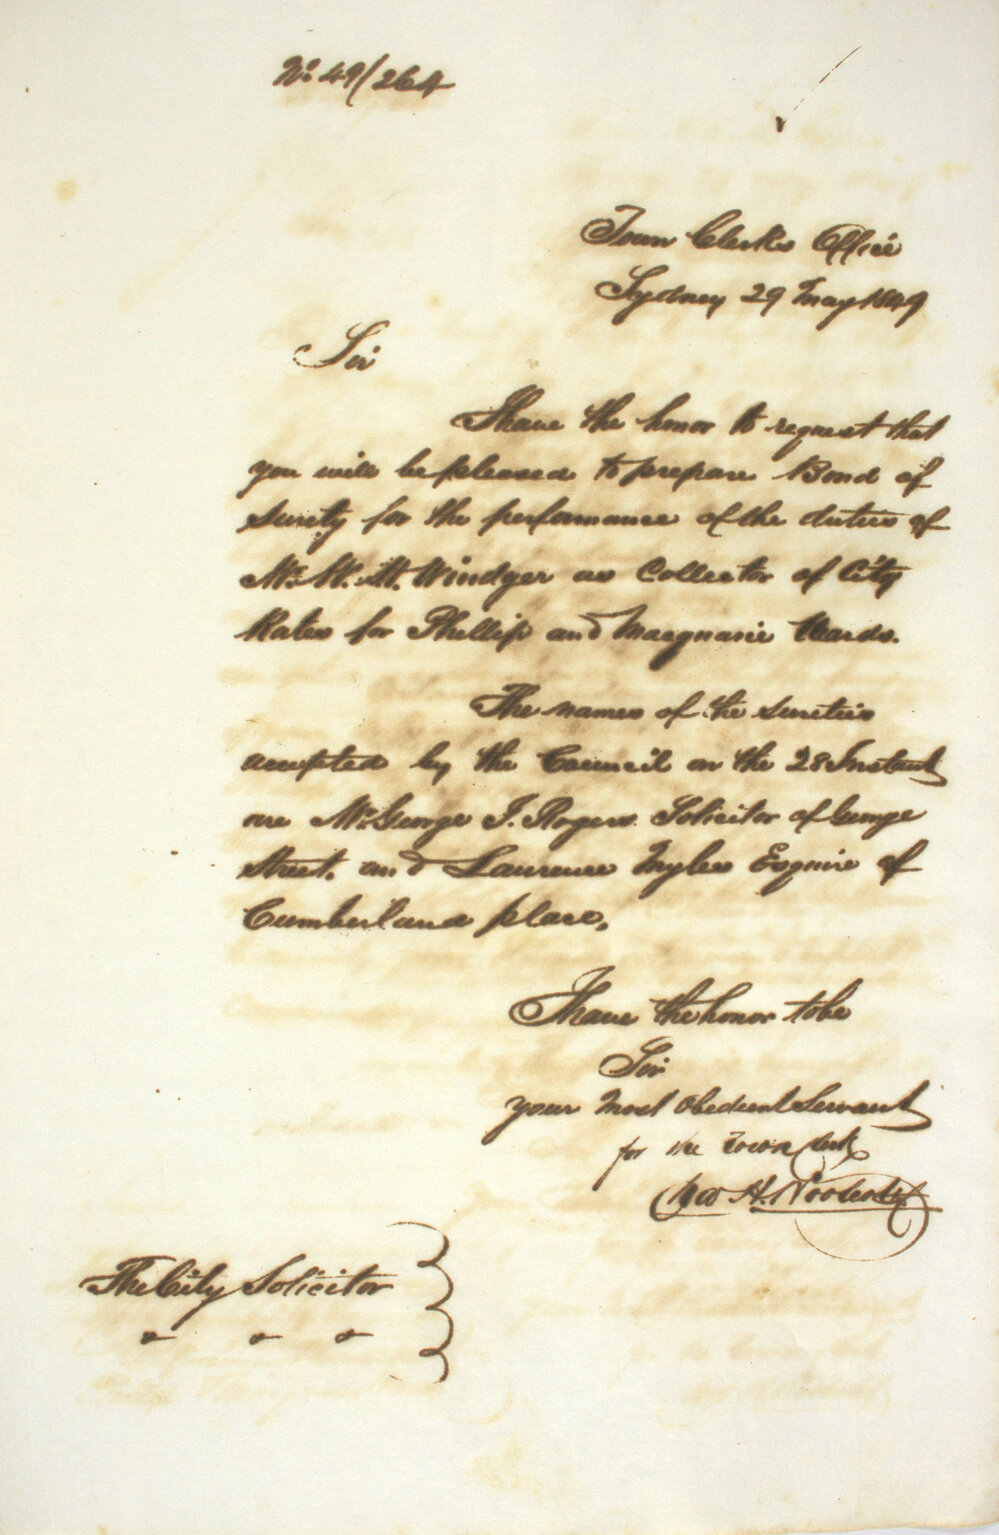 No. 49/264
Town Clerks Office
Sydney 29 May 1849
Sir
I have the honor to request that
you will be pleased to prepare Bond of
Surety for the performance of the duties of
Mr. W. H. Windyer as Collector of City
Rates for Phillip and Macquarie Wards.
The names of the sureties
accepted by the Council on the 28 Instant
are Mr. George J. Rogers Solicitor of George
Street, and Laurence Myles Esquire of
Cumberland place.
I have the honor to be
Sir
your Most Obedient Servant
for the Town Clerk
H.
The City Solicitor